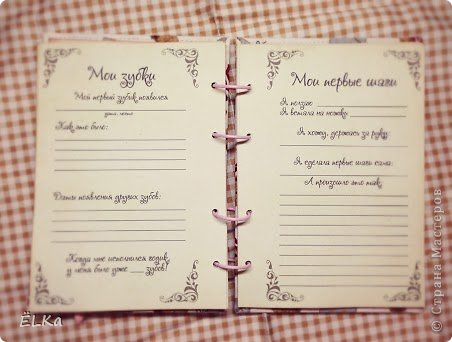 Мои зубки
Мой первый зубик появился
Как это было:
Даты появления других зубов:
Когда мне исполнился годик,
у меня было уже ___ зубов!
Мои первые шаги
Я ползаю
Я встала на ножки
Я хожу, держась за руку
Я сделала первые шаги сама:
А произошло это так:
ЁLKa
© Страна Мастеров